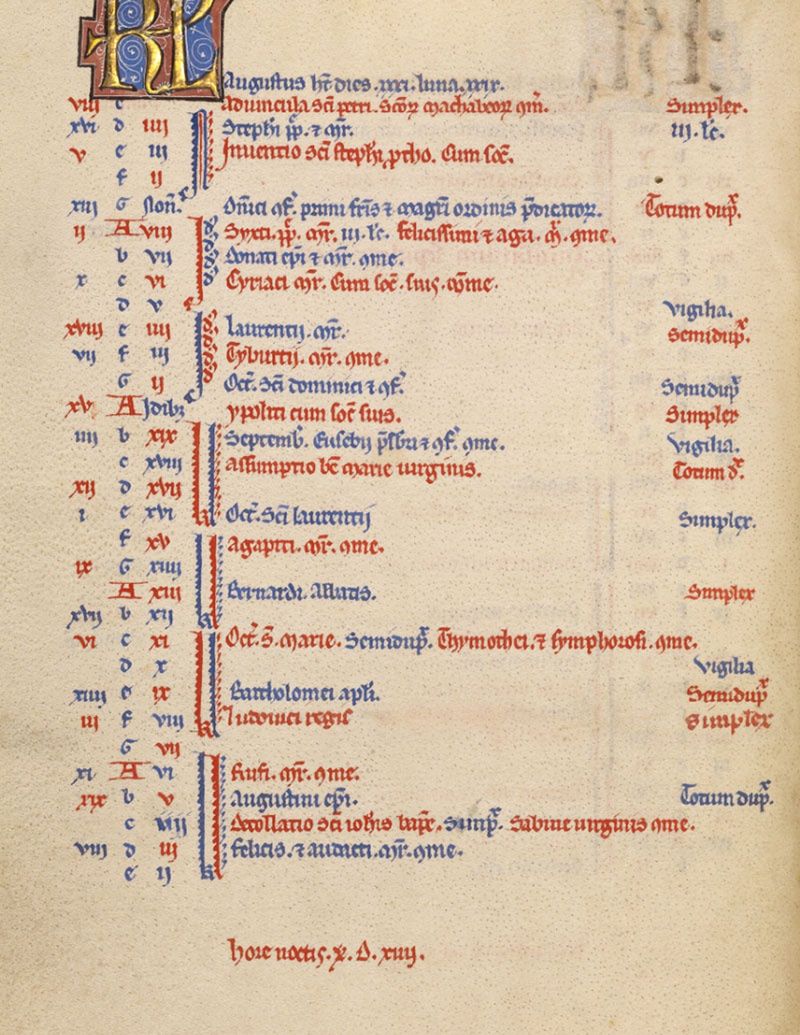 KL
Augustus ht dies .xxxi. luna .xxix.
viii c Aduincula sci petri. Scoꝝ machabeoꝝ mr̄. Simplex.
xvi d iiii Stephi pp̄. ⁊ mr̄. iii. lc̄.
v e iii Inuentio sci stephi ptho. Cum soc̄.
f ii
xiii G Non̄. Dn̄ici qf̄. primi fr̄is ⁊ magr̄i ordinis p̄dicatoꝝ. Totum dup̄.
ii A viii Syxti. pp̄. mr̄. iii. lc̄. felicissimi ⁊ aga. mr̄. ꝯme.
b vii Donati ep̄i ⁊ mr̄. ꝯme.
x c vi Cyriaci mr̄. Cum soc̄. suis. ꝯme.
d v Vigilia.
xviii e iiii Laurentii. mr̄. Semidup̄.
vii f iii Tyburtii. mr̄. ꝯme.
G ii Oct̄. sci dominici ⁊ qf̄. Semidup̄
xv A Idibꝫ ypoliti cum soc̄ suis. Simplex
iiii b xix Septemb̄. Eusebii p̄sbri ⁊ qf̄. ꝯme. Vigilia.
c xviii Assumptio bē marie uirginis. Totum d̄.
xii d xvii
i e xvi Oct̄. sci laurentii Simplex.
f xv Agapiti. mr̄. ꝯme.
ix G xiiii
A xiii Bernardi. Abbatis. Simplex
xvii b xii
vi c xi Oct̄. s̄. marie. Semidup̄. Thymothei. ⁊ symphorosi. ꝯme.
d x Vigilia
xiiii e ix Bartholomei apl̄i. Semidup̄
iii f viii Ludouici regis simplex
G vii
xi A vi Rufi. mr̄. ꝯme.
xix b v Augustini ep̄i. Totum dup̄.
c iiii Decollatio sci iohis bapt̄e. Simp̄. Sabine uirginis ꝯme.
viii d iii felicis. ⁊ audacti. mr̄. ꝯme.
e ii
hore noctis. x. D. xiiii.